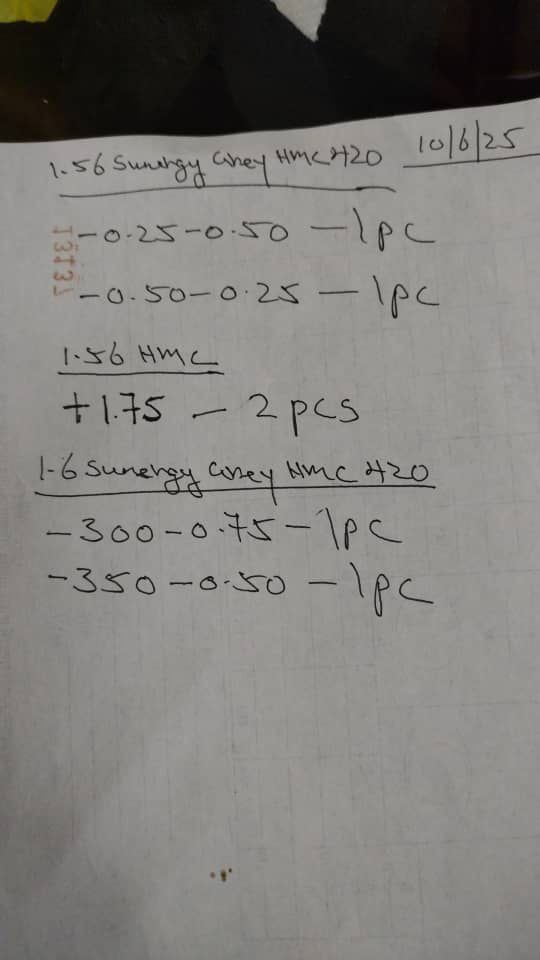 1.56 Sunergy Grey HMC 420 10/6/25
-0.25-0.50 - 1pc
-0.50-0.25 - 1pc
1.56 HMC
+1.75 - 2pcs
1.6 Sunergy Grey HMC 420
-300-0.75-1pc
-350-0.50-1pc